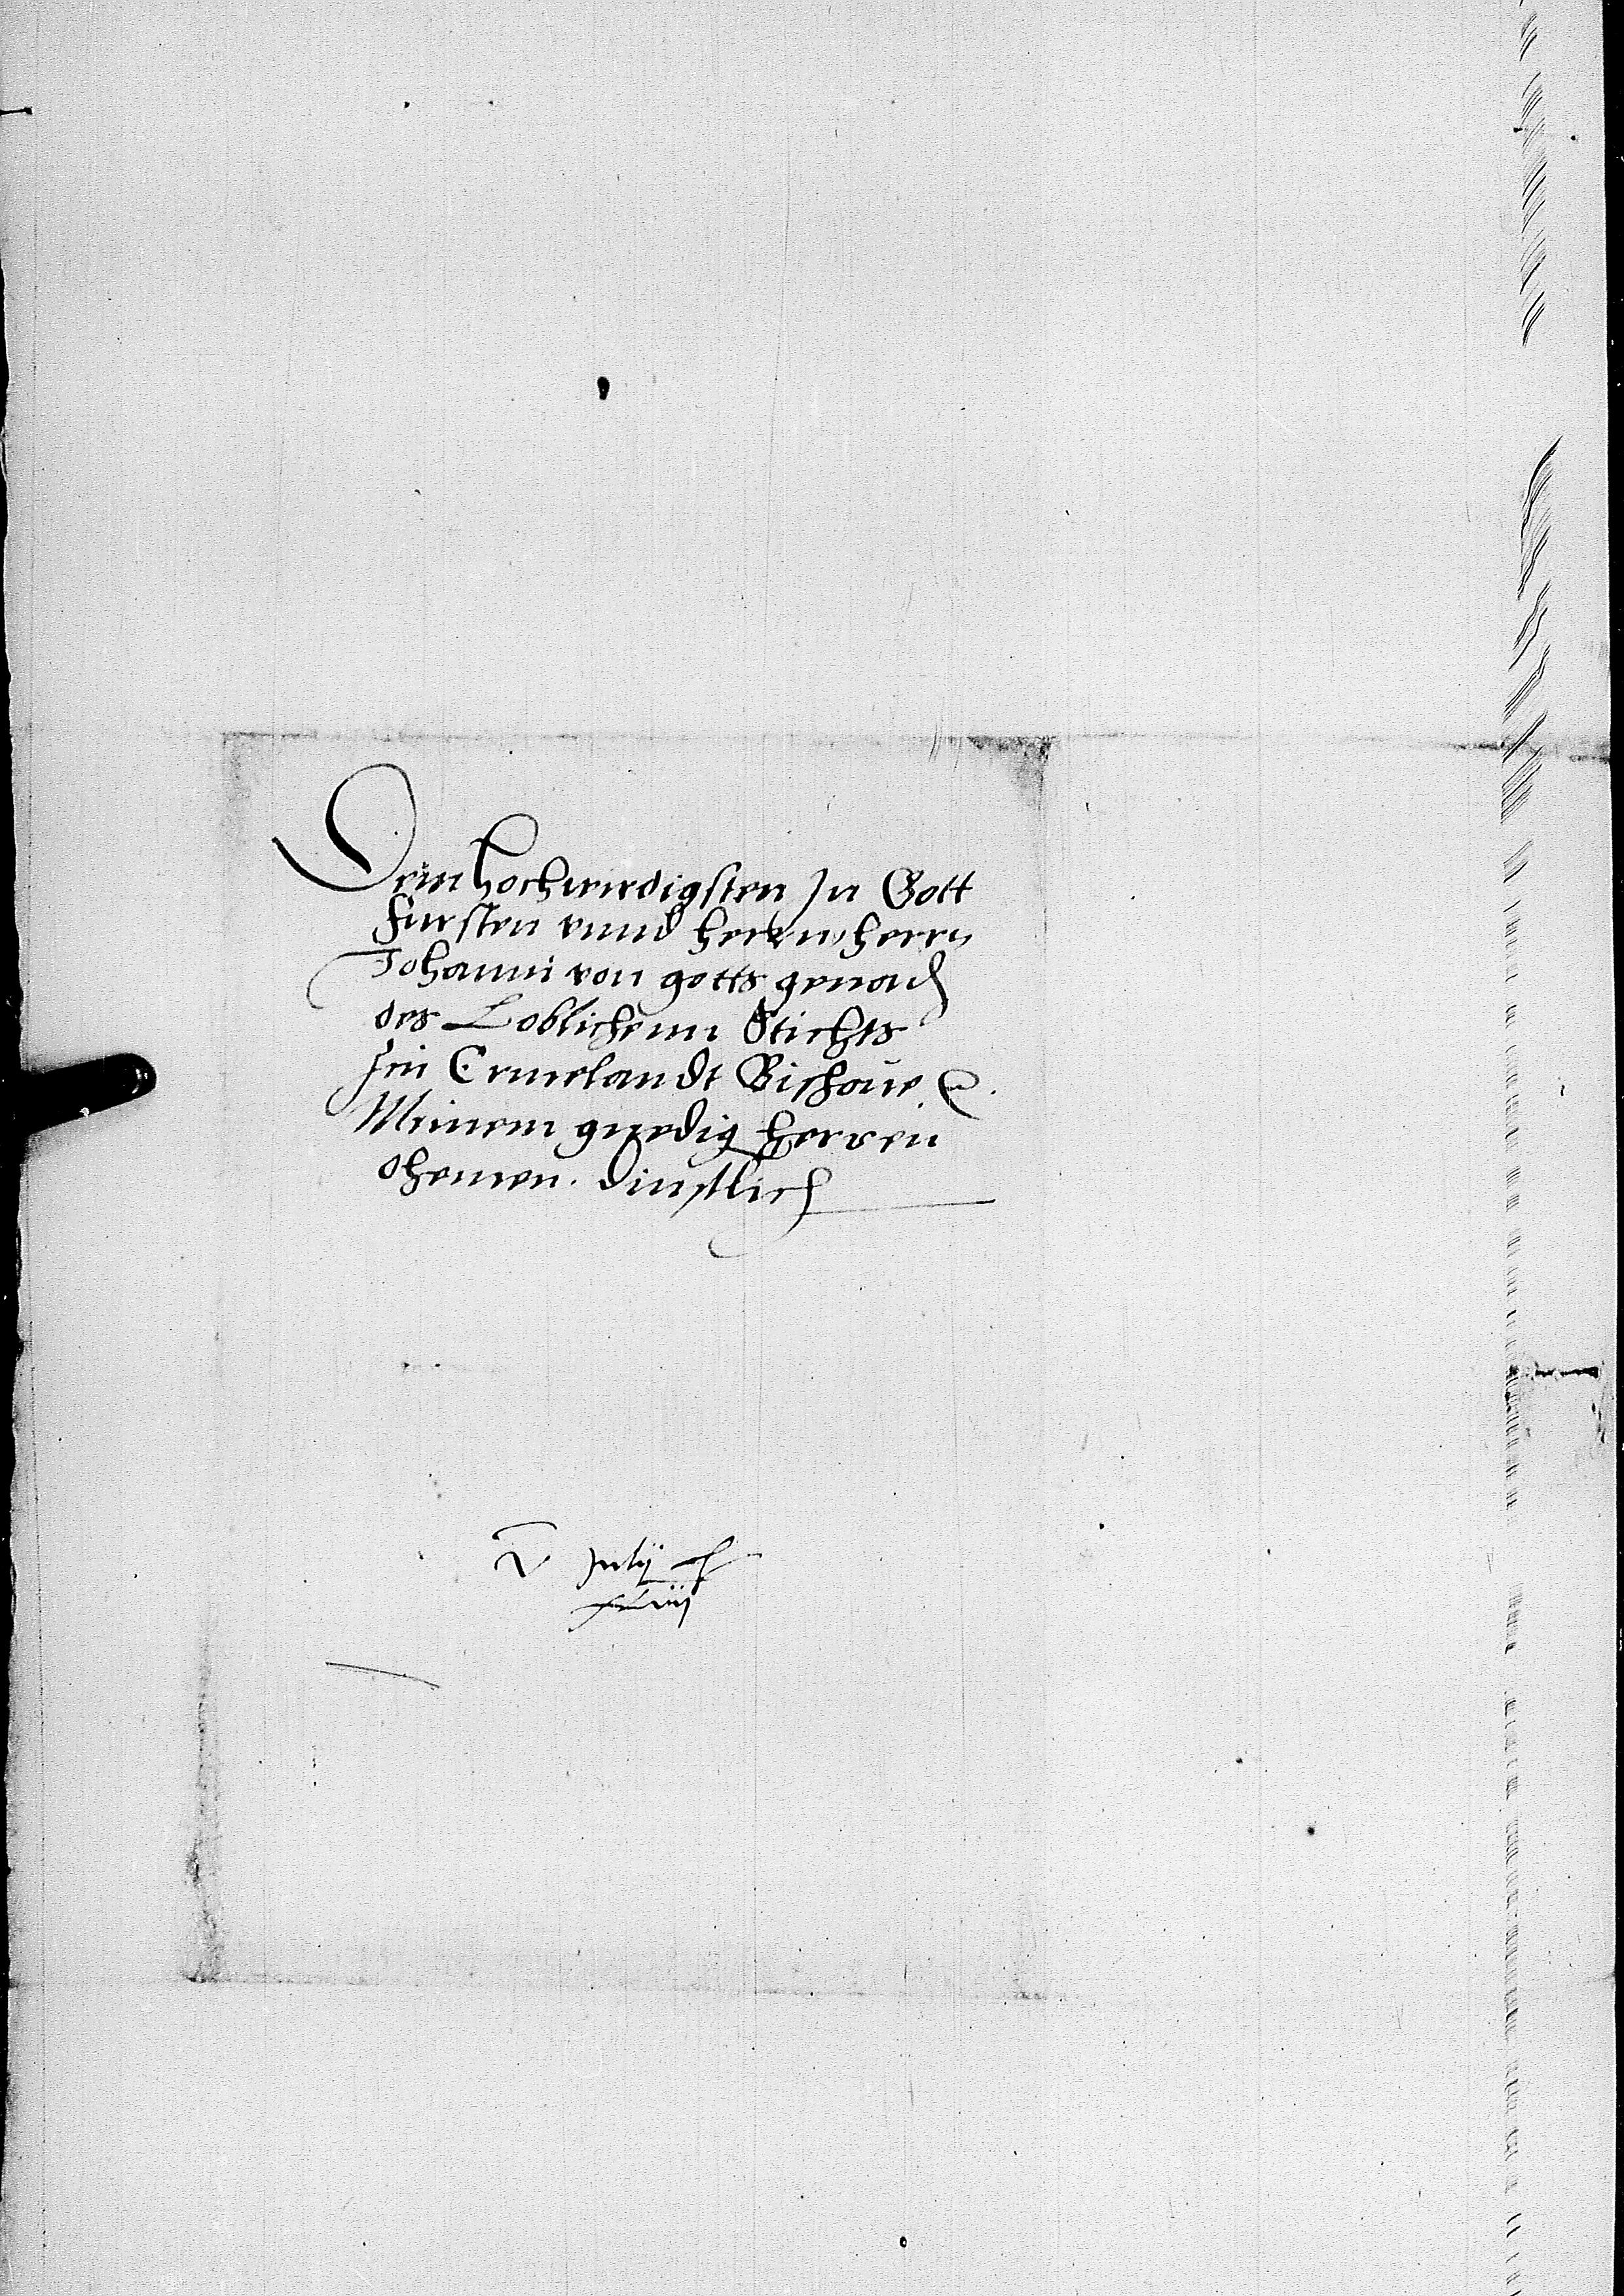 Dem hochwirdigsten In Gott
Fursten vnnd herrn, herrn
Johanni von gotts genad
des Loblichenn Stichts
Jm Ermelandt Bischoue &.
Meinem gnedig herren
ohemen. Dinstlich
V Julij
xLiij